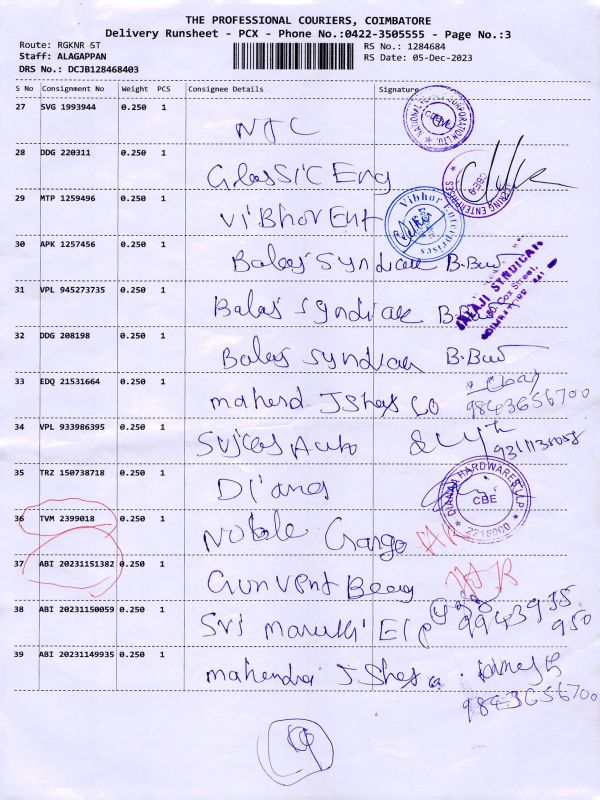 THE PROFESSIONAL COURIERS, COIMBATORE
Delivery Runsheet - PCX - Phone No.:0422-3505555 - Page No.:3
Route: RGKNR ST RS No.: 1284684
Staff: ALAGAPPAN RS Date: 05-Dec-2023
DRS No.: DCJB128468403
S No Consignment No Weight PCS Consignee Details Signature
27 SVG 1993944 0.250 1
NTC
28 DDG 220311 0.250 1
Glassic Eng
29 MTP 1259496 0.250 1
ViBhor Ent
Vibhor Enterprises
30 APK 1257456 0.250 1
Balaj Syndicae
31 VPL 945273735 0.250 1
Balaj Syndicae
BALAJI SYNDICATE
32 DDG 208198 0.250 1
Balaj Syndicae
33 EDQ 21531664 0.250 1
mahend. J Shey Co 9843656700
34 VPL 933986395 0.250 1
Auto
35 TRZ 150738718 0.250 1
DIANAA HARDWARE LLP
CBE
36 TVM 2399018 0.250 1
Noble Cargo
37 ABI 20231151382 0.250 1
38 ABI 20231150059 0.250 1
Sri Maruthi Elp 9943935
950
39 ABI 20231149935 0.250 1
9843656700